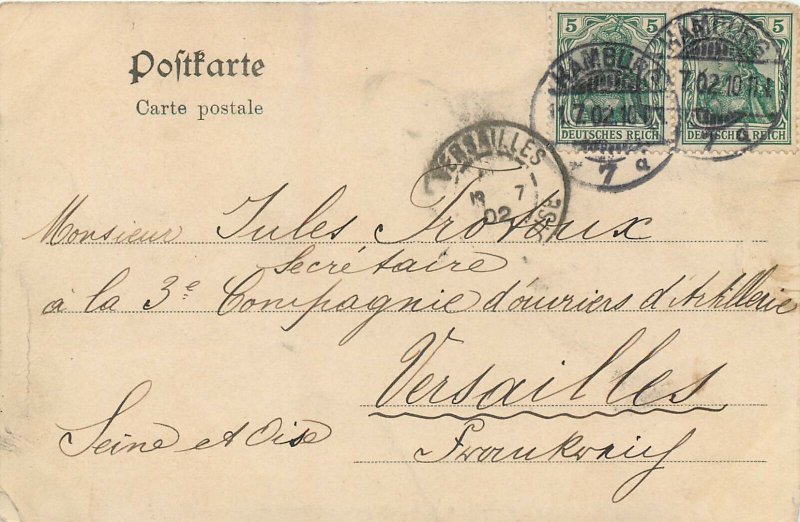 Postkarte
Carte postale
5 5 5
DEUTSCHES REICH DEUTSCHES REICH
HAMBURG
7.02.10
7
HAMBURG
7.02.10
7
VERSAILLES
7
02
Monsieur Jules
Secrétaire
à la 3e Compagnie d'ouvriers d'Artillerie
Versailles
Seine et Oise
Frankreich